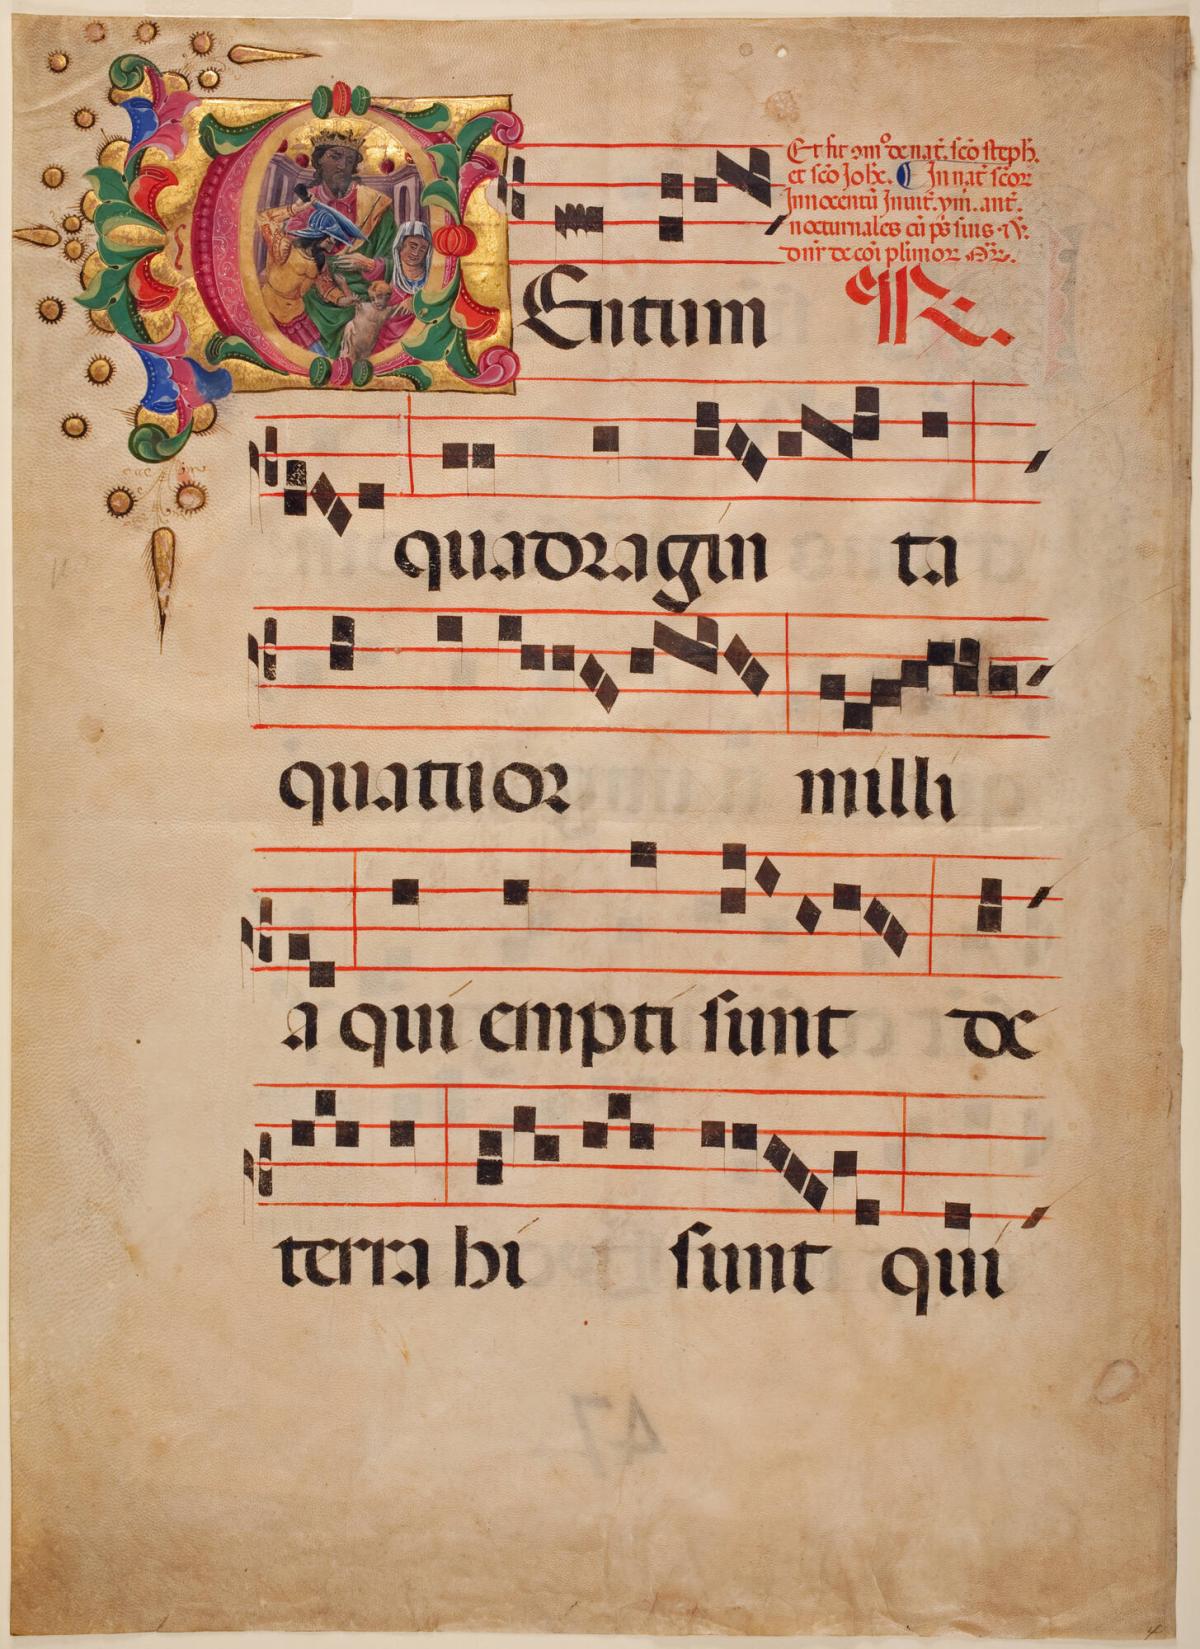 Et fit om̅ de nat̅. sc̅o steph̅.
et sc̅o Joh̅e. In nat̅ sc̅or
Innocentu̅ Inuit̅. ant̅.
nocturnales cu̅ ps̅ suis V̅.
Centum R.
quadragin ta
quatuor milli
a qui empti sunt de
terra hi sunt qui
47